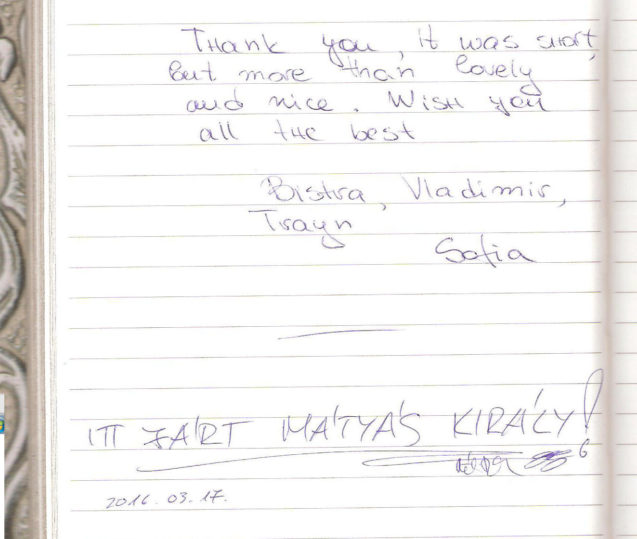 Thank you, it was short,
but more than lovely
and nice. Wish you
all the best
Bistra, Vladimir,
Trayn
Sofia
ITT JÁRT MÁTYÁS KIRÁLY!
6
2016. 03. 17.